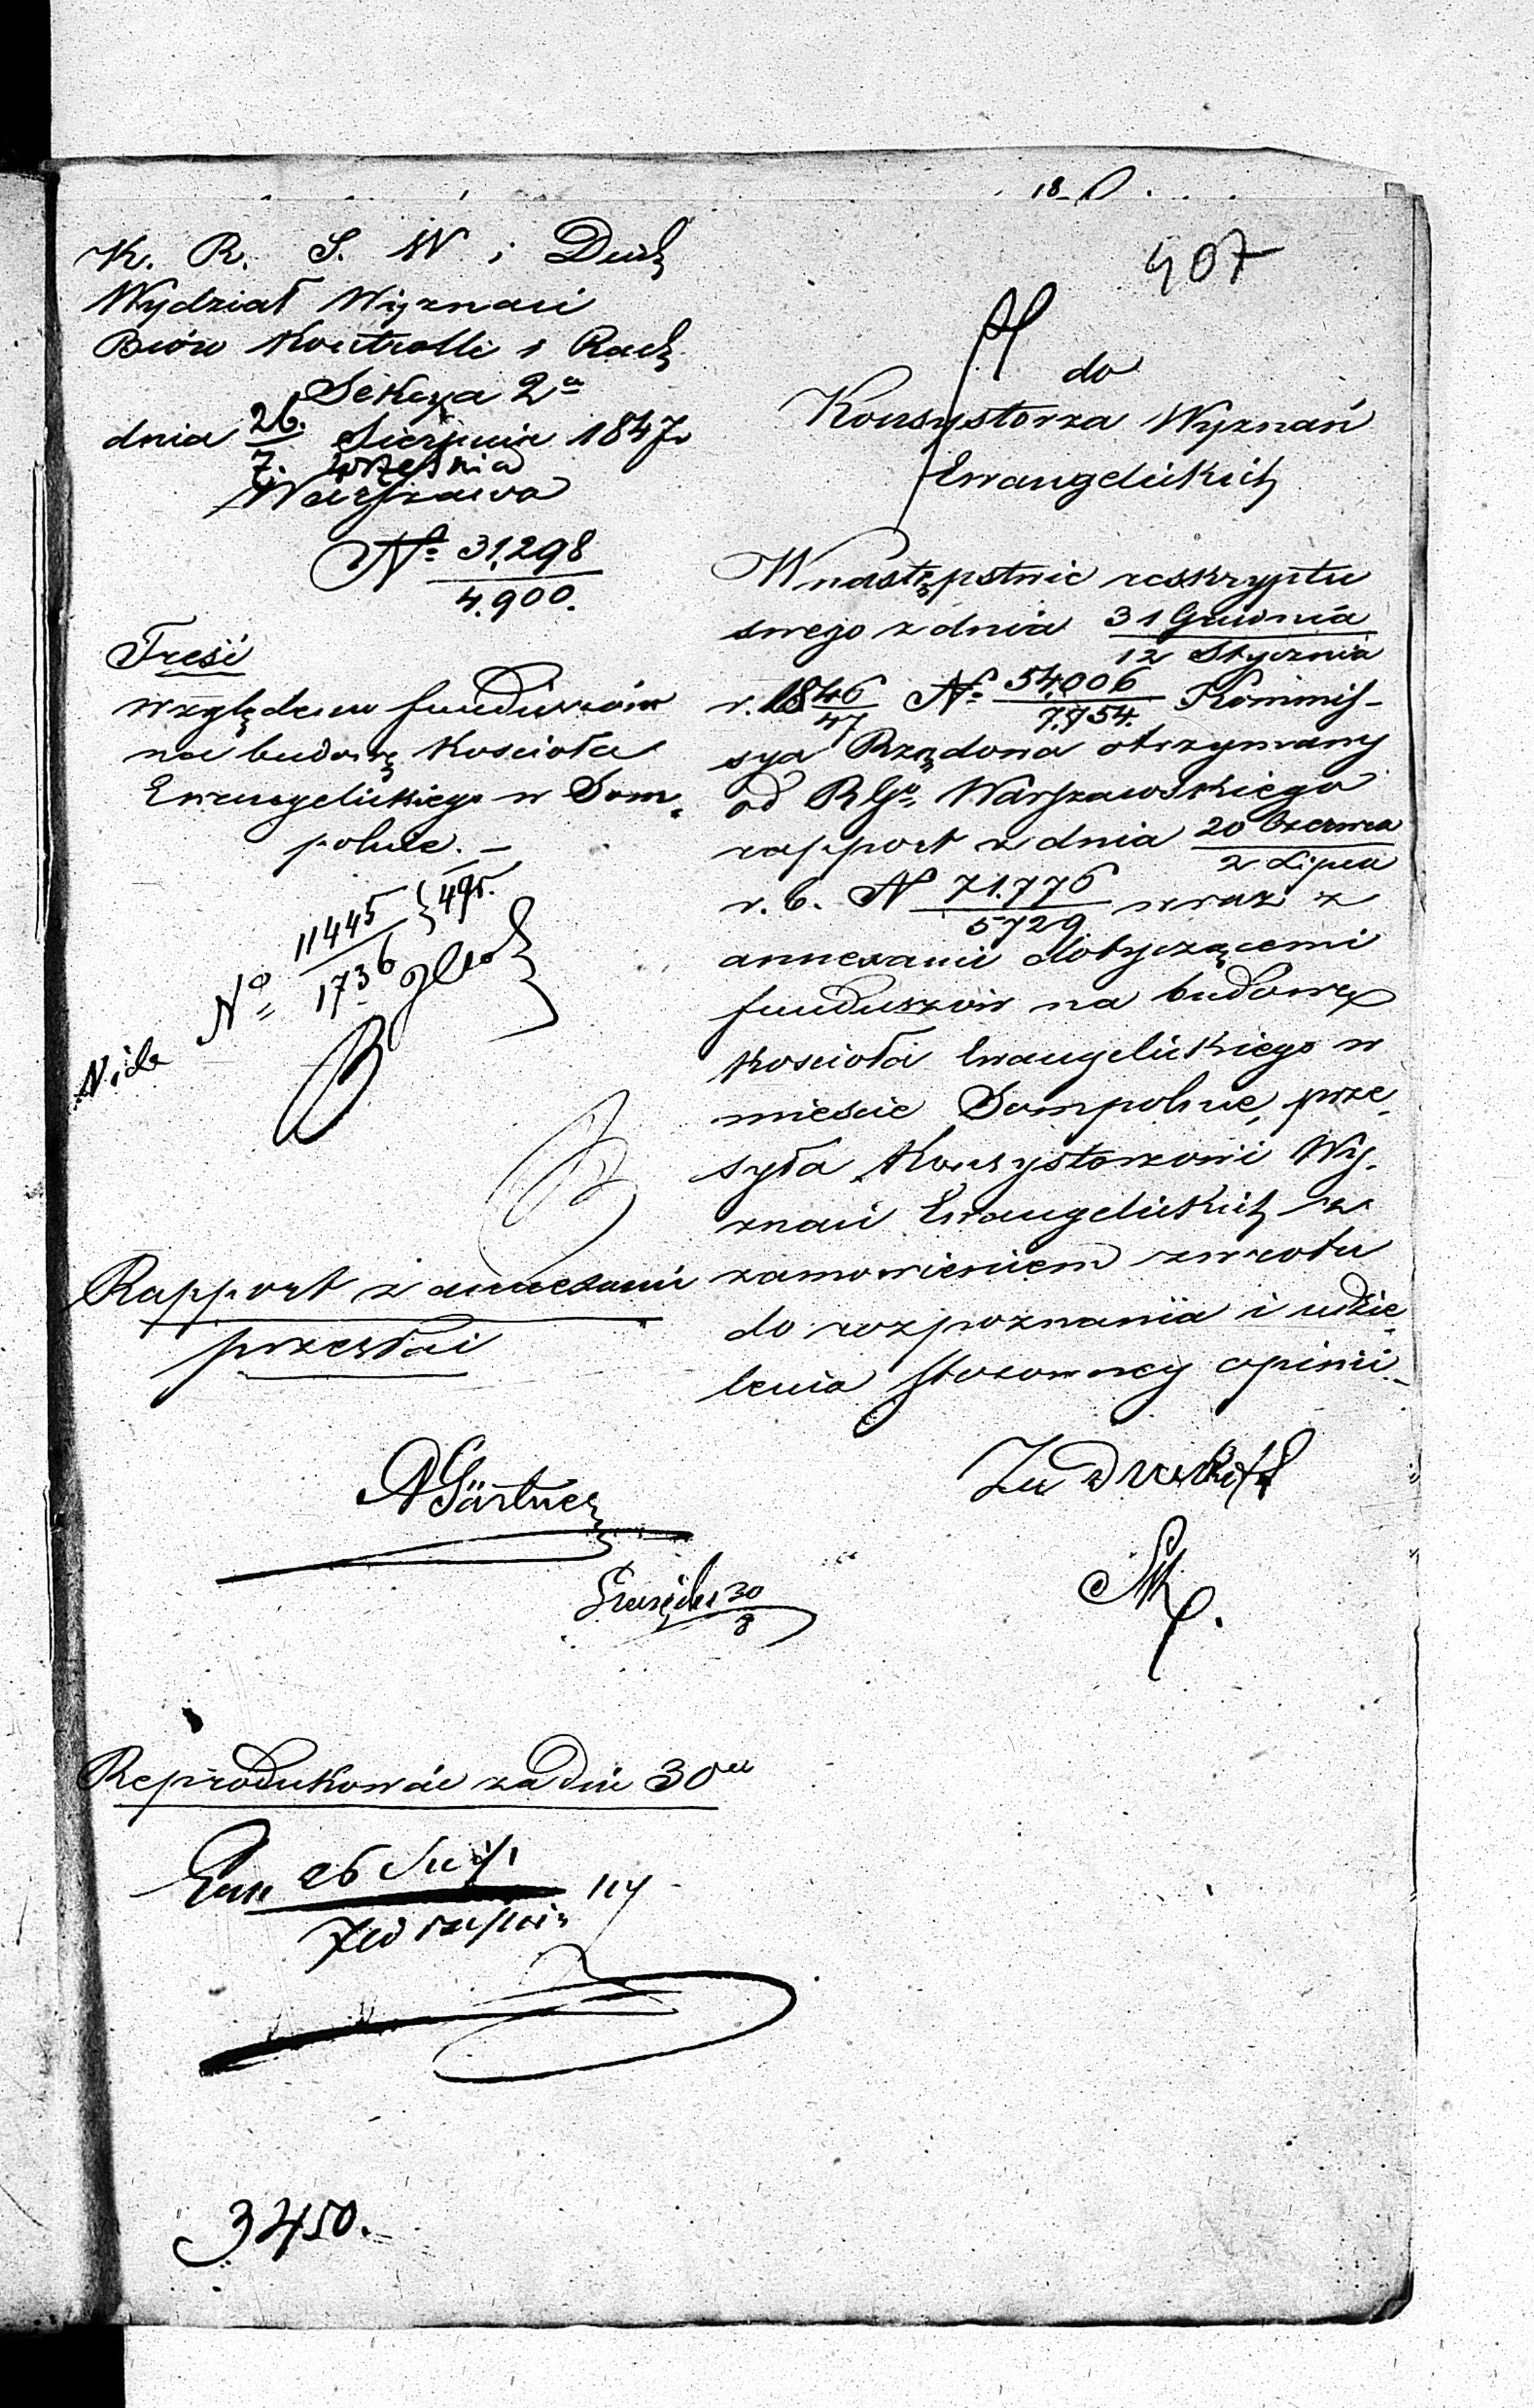 407
K. R. S. W. i Duch
Wydział Wyznań
Bióro Kontrolli i Rach.
Sekcya 2a
dnia 26. Sierpnia 1847
7. Września
Warszawa
No 31,298
4.900.
Treść
względem funduszów
na budowę Kościoła
Ewangelickiego w Som-
polnie. –
Vide No 11445 } 495.
1736
Rapport z annexami
przesłać
AGärtner
30
8
Reprodukować za dni 30
26
7
3450.
do
Konsystorza Wyznań
Ewangelickich
W następstwie reskryptu
swego z dnia 31 Grudnia
12 Stycznia
r. 1846 No 54,006 Kommis-
47 7,754.
sya Rządowa otrzymany
od RGo. Warszawskiego
rapport z dnia 20 Czerwca
2 Lipca
r. b. N 71.776 wraz z
5729
annexami dotyczącemi
funduszów na budowę
Kościoła Ewangelickiego w
mieście Sompolnie, prze-
syła Konsystorzowi Wy-
znań Ewangelickich z
zamówieniem zwrotu
do rozpoznania i udzie-
lenia stosowney opinii. –